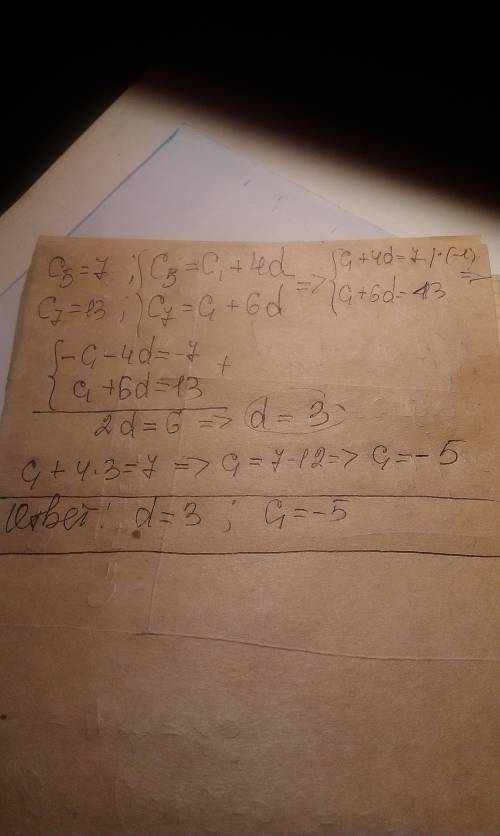 C₅=7 ; { C₅=C₁+4d => { C₁+4d=7 |·(-1) =>
C₇=13 ; { C₇=C₁+6d { C₁+6d=13
{ -C₁-4d=-7 +
{ C₁+6d=13
2d=6 => d=3
C₁+4·3=7 => C₁=7-12 => C₁=-5
Ответ: d=3 ; C₁=-5